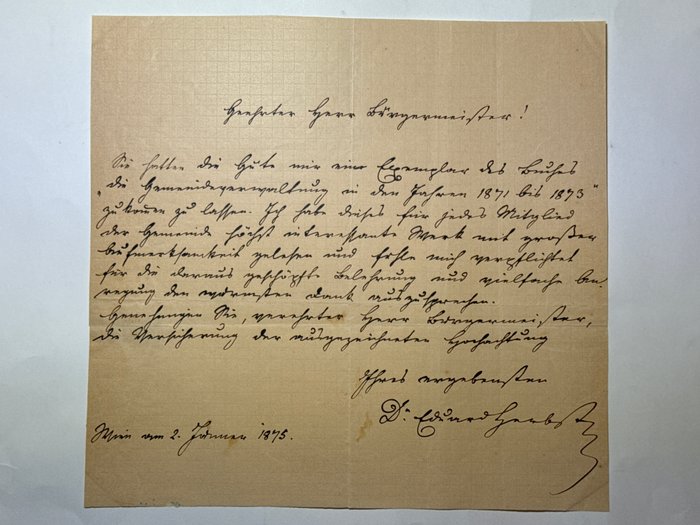 Geehrter Herr Bürgermeister!
Sie hatten die Güte mir ein Exemplar des Buches
„die Gemeindeverwaltung in den Jahren 1871 bis 1873“
zukomen zu lassen. Ich habe dieses für jedes Mitglied
der Gemeinde höchst interessante Werk mit großer
Aufmerksamkeit gelesen und fühle mich verpflichtet
für die daraus geschöpfte Belehrung und vielfache An-
regung den wärmsten Dank auszusprechen.
Genehmigen Sie, verehrter Herr Bürgermeister,
die Versicherung der ausgezeichneten Hochachtung
Ihres ergebensten
Dr. Eduard Herbst
Wien am 2. Jänner 1875.